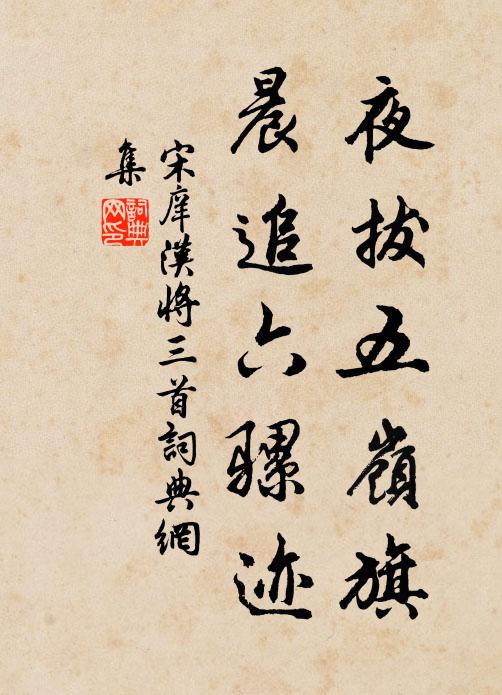 夜拔五嶺旗
晨追六騾迹
宋庠漢將三首詞典網
集
詞典網印